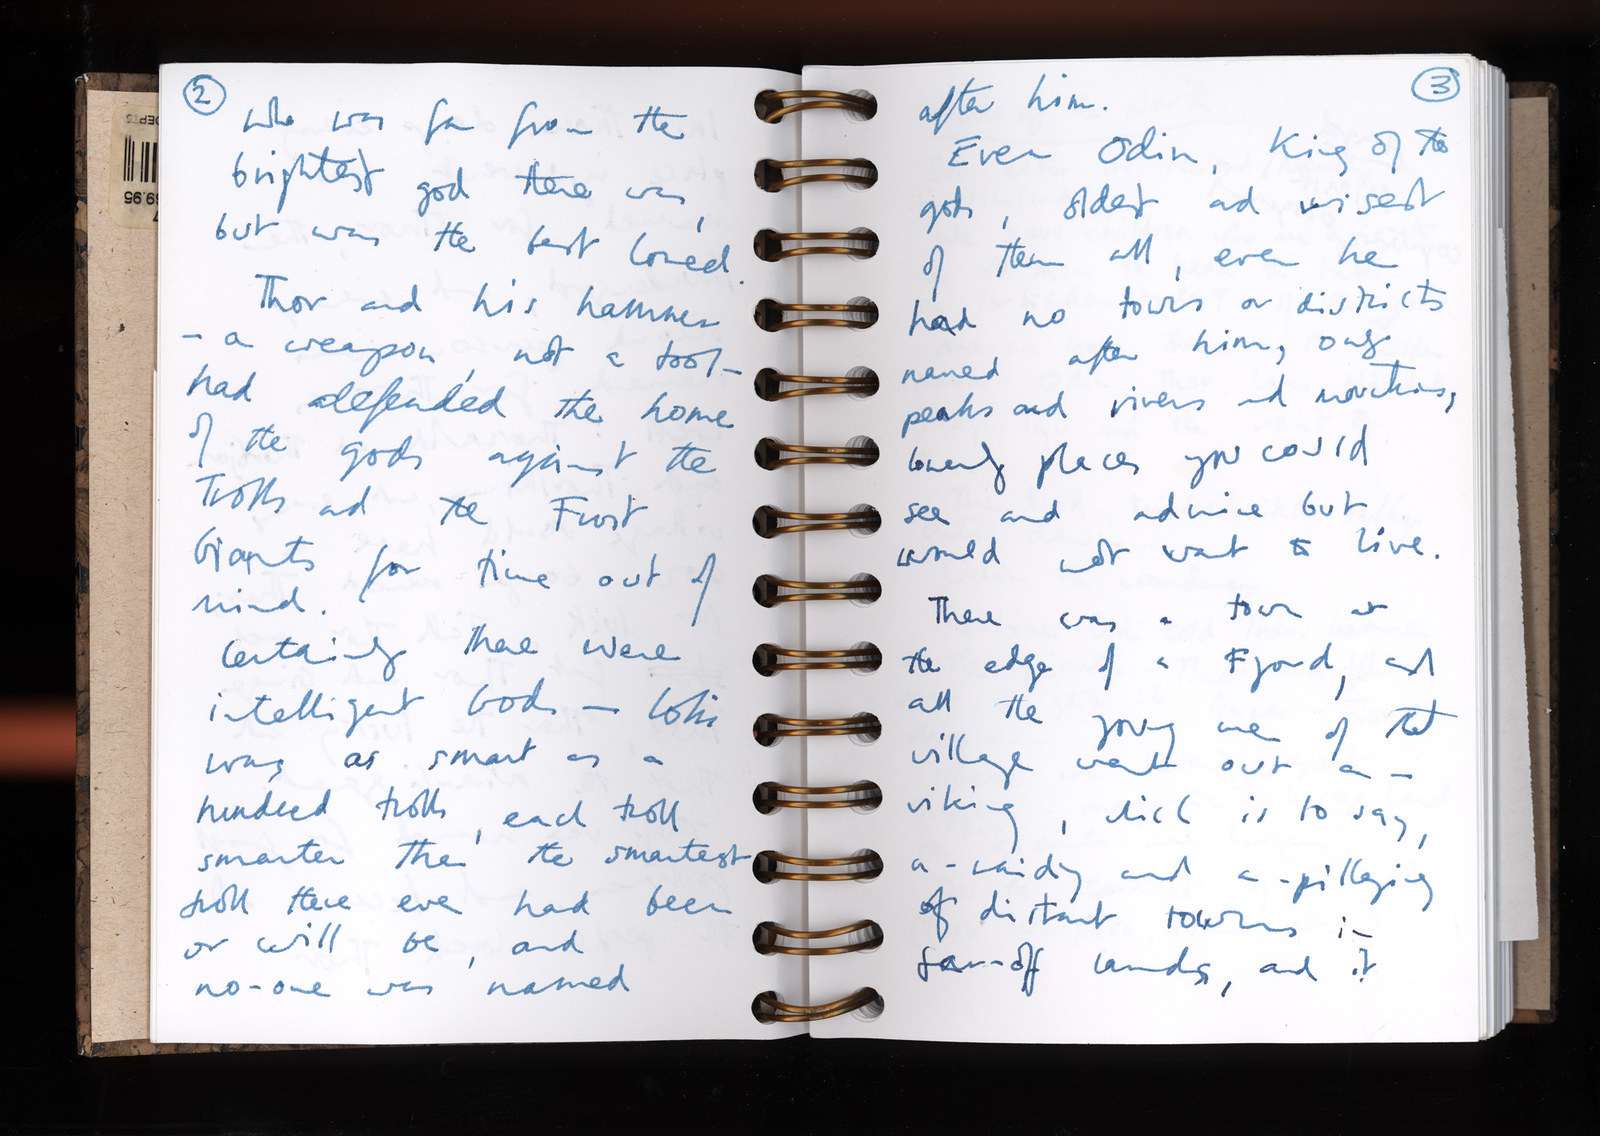 2
who was far from the
brightest god there was,
but was the best loved.
Thor and his hammer
- a weapon, not a tool -
had defended the home
of the gods against the
Trolls and the Frost
Giants for time out of
mind.
Certainly there were
intelligent Gods — Loki
was as smart as a
hundred trolls, each troll
smarter than the smartest
troll there ever had been
or will be, and
no-one was named
3
after him.
Even Odin, King of the
gods, oldest and wisest
of them all, even he
had no towns or districts
named after him, only
peaks and rivers and mountains,
lonely places you could
see and admire but
would not want to live.
There was a town at
the edge of a Fjord, and
all the young men of that
village went out a-
viking, which is to say,
a-raiding and a-pillaging
of distant towns in
far-off lands, and it
DEPTS
39.95